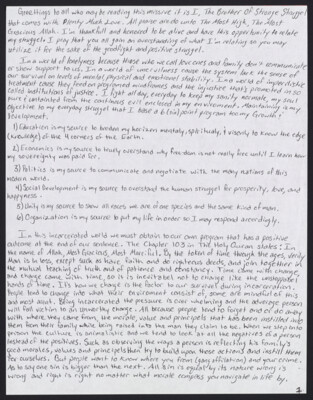 Greetings to all who may be reading this missive it is I, The Brother Of Strange Struggel
that comes with Plenty Much Love. All praise are do unto The Most High, The Most
Gracious Allah. I'm thankfull and honored to be alive and have this opportunity to relate
my struggels. I pray that you all gain an overstanding of what I'm relating so you may
utilize it for the sake of the good fight and positive struggel.
In a world of lonelyness because those who we call love ones and family don't communicate
or show support to us. In a world of unevilness cause the system lack the sense of
our survival on levels of mental, physical and emotional stability. In a world of imperialistic
treatment cause they feed on programed mindframes and the injustice that's promoted in so
called institutions of justice. I fight all day, everyday to keep my sanity normate, my soul
pure & untainted from the continuous evil enclosed in my environment. Maintaining is my
objective to my everyday struggel that I have a 6 (six) point program too my Growth &
Development.
1) Education is my source to broaden my horizons mentally, spiritually, & visonly to know the edge
(knowledge) of the 4 corners of the Earth.
2) Economics is my source to truely overstand why freedom is not really free until I learn how
my sovereignty was paid for.
3) Politics is my source to communicate and negotiate with the many nations of this
modern world.
4) Social Development is my source to overstand the human struggel for prosperity, love, and
happyness.
5) Unity is my source to show all races we are of one species and the same kind of man.
6) Organization is my source to put my life in order so I may respond accordingly.
In this incarcerated world we must obtain to our own program that has a positive
outcome at the end of our sentence. The Chapter 103 in The Holy Quran states: In
the name of Allah, Most Gracious, Most Merciful. By the token of time through the ages, Verily
Man is in loss, except such as have faith, and do righteous deeds, and join together in
the mutual teaching of truth and of patience and constancy. Time come with change,
and change come with time, so it is inevitable not to change like the unstoppable
hands of time. It's how we change is the factor to our survival during incarceration.
People tend to change into what their excitement consist of, some are mindfull of this
and most aint. Being incarcerated the pressure is over whelming and the adverage person
will fall victim to an unworthy change. All because people tend to forget and do away
with where they came from, the morale, value and principels that has been instilled into
them from their family while being raised into the man they claim to be. When we step into
prison the culture is animalistic and we tend to look at all the negatives of a person
instead of the positives. Such as observing the ways a person is reflecting his family's
good morales, values and principels then try to build upon these actions and instill them
for ourselves. But people want to know where you from (gang affiliations) and your crime.
As to say one sin is bigger than the next. All sin is equal by its nature wrong is
wrong and right is right no matter what morale compass you navigate in life by.
1